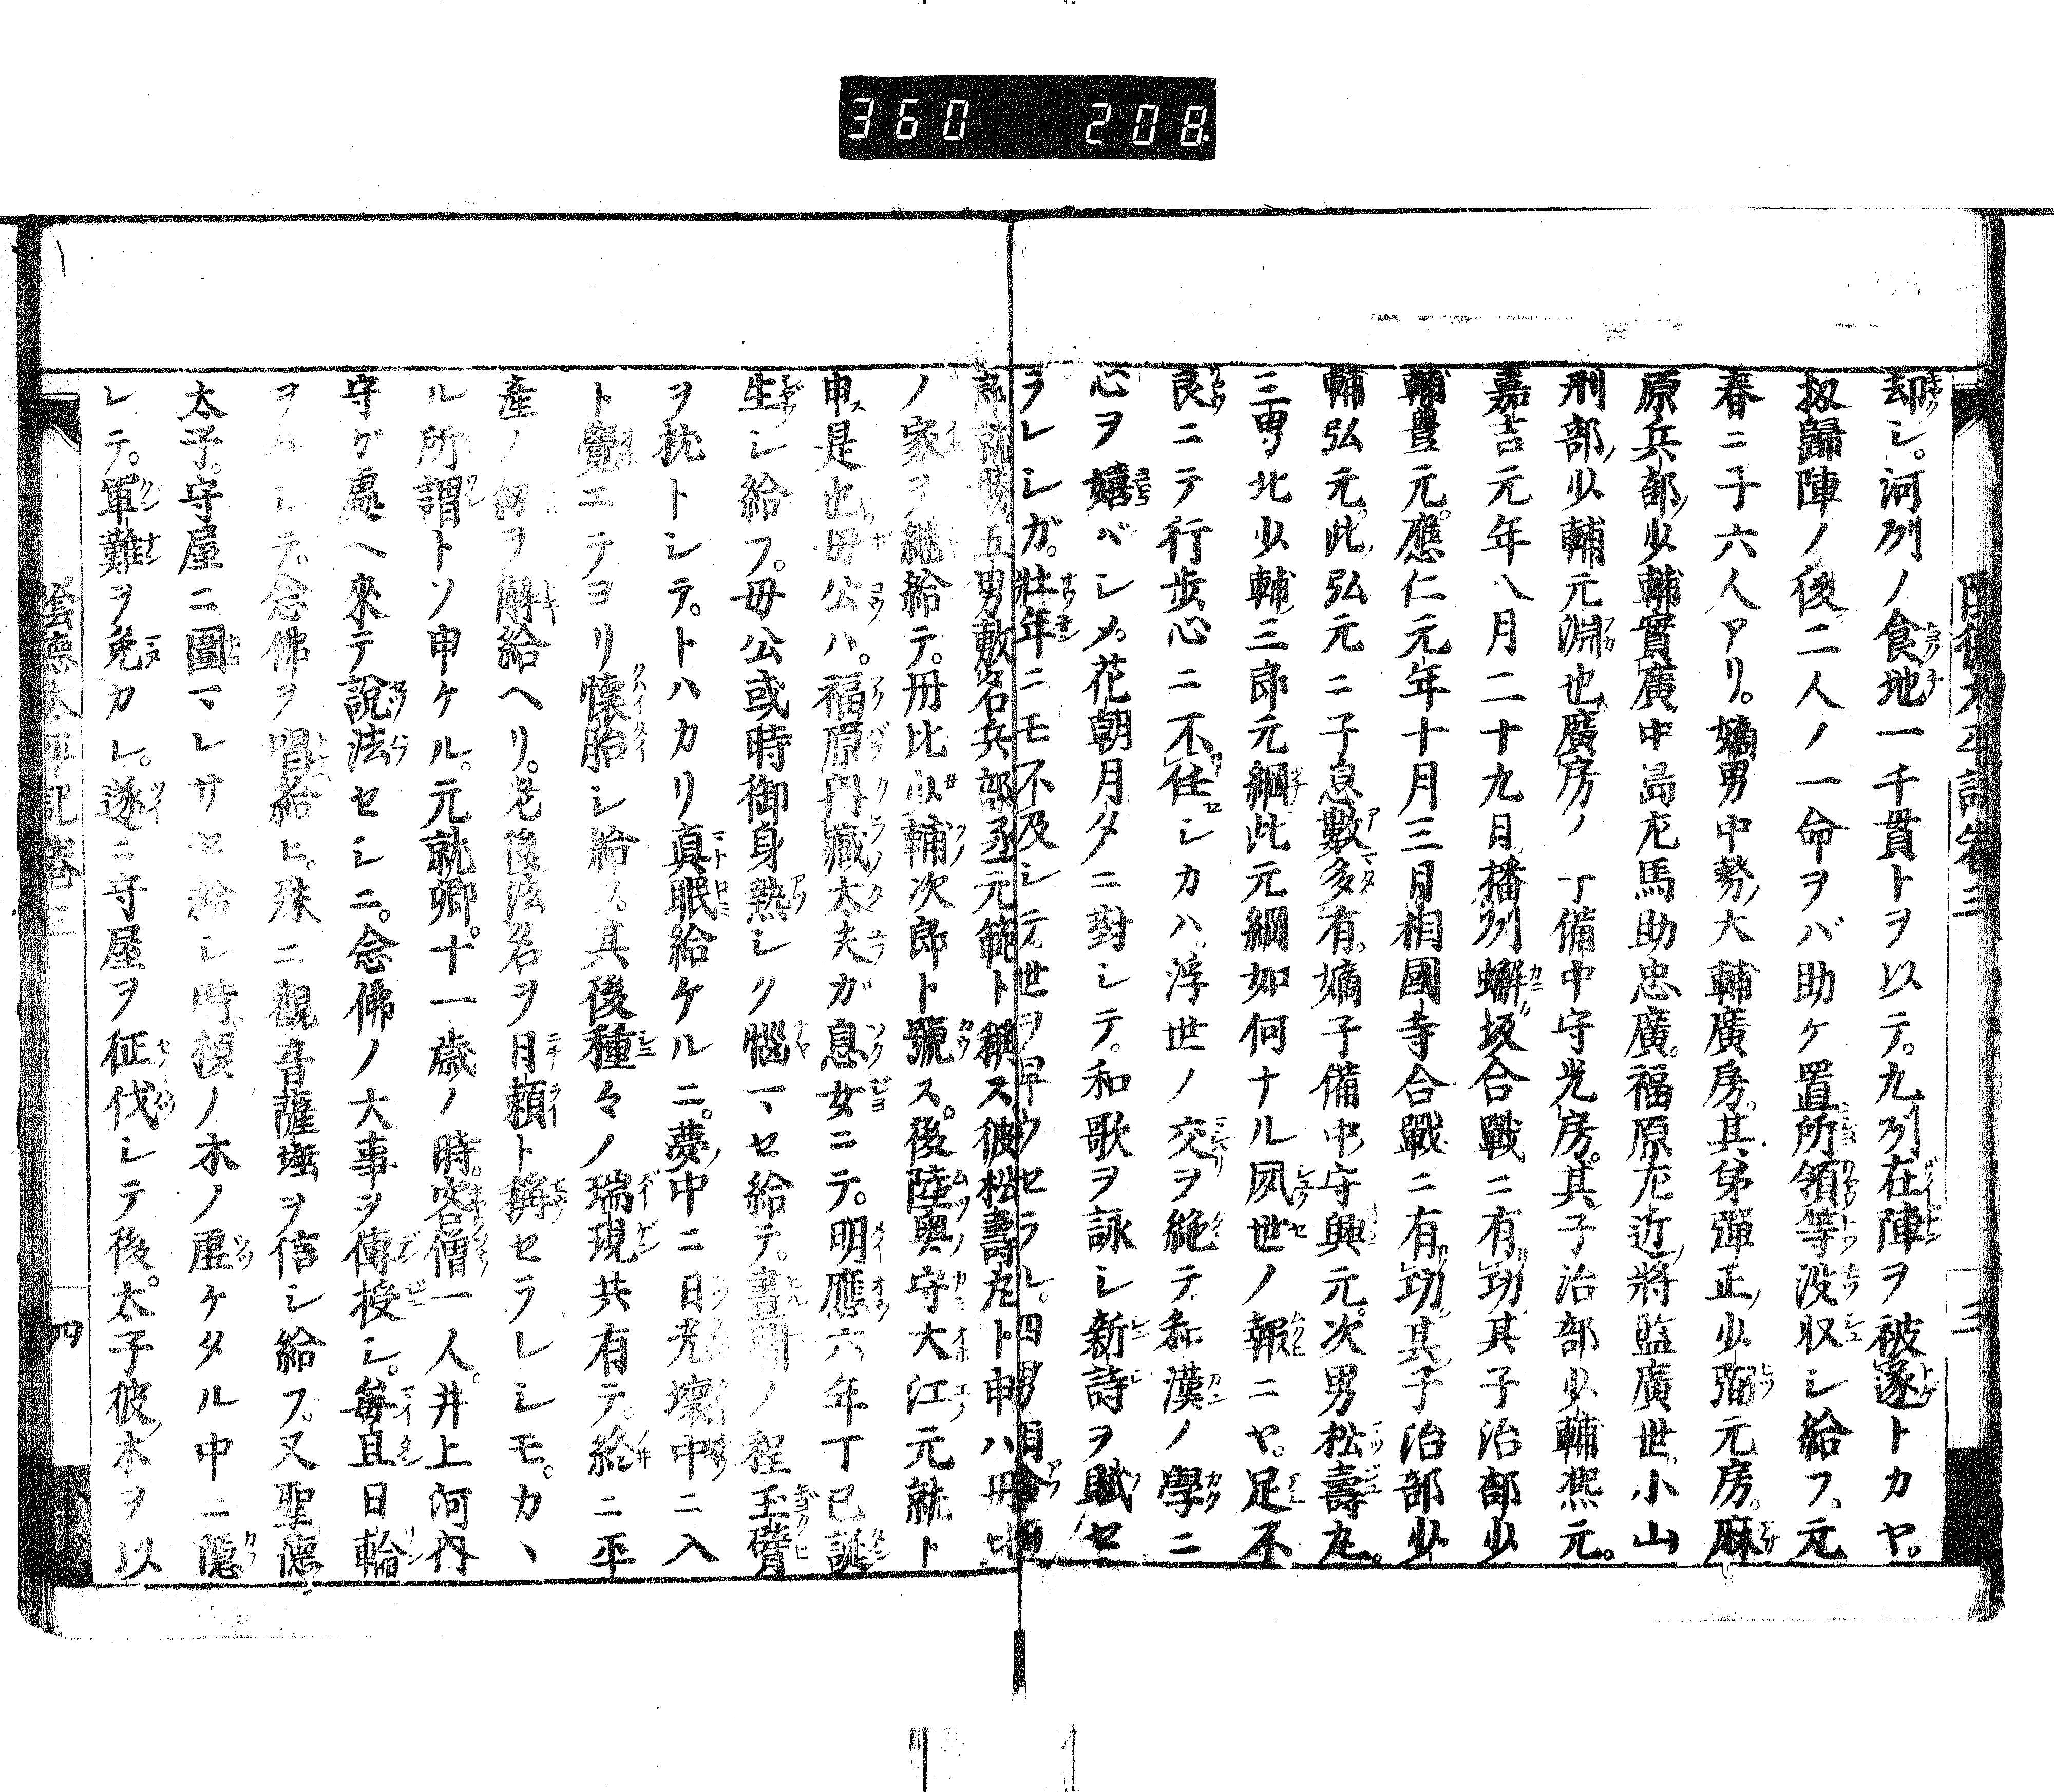 360 208
陰徳太平記卷三 三
却シ。河列ノ食地一千貫トヲ以テ。九列在陣ヲ被遂トカヤ。
扨歸陣ノ後二人ノ一命ヲバ助ケ置所領等没収シ給フ。元
春ニ子六人アリ。嫡男中務大輔廣房。其弟彈正少弼元房。麻
原兵部少輔實廣中嶋左馬助忠廣。福原左近將監廣世。小山
刑部少輔元淵也。廣房ノ丁備中守光房。其子治部少輔熈元。
嘉吉元年八月二十九日播列蠏坂合戰ニ有功其子治部少
輔豊元。應仁元年十月三日相國寺合戰ニ有功。其子治部少
輔弘元。此弘元ニ子息數多有。嫡子備中守興元。次男松壽丸。
三男北少輔三郎元綱此元綱如何ナル夙世ノ報ニヤ。足不
良ニテ行歩心ニ不任シカハ。浮世ノ交ヲ絶テ和漢ノ學ニ
心ヲ嬉バシメ。花朝月夕ニ對シテ。和歌ヲ詠シ新詩ヲ賦セ
ヲレシガ。壯年ニモ不及シテ世ヲ早ウセラル。四男相合
就勝五男敷名兵部丞元範ト稱ス彼松壽丸ト申ハ丹比
ノ家ヲ継給テ。丹比少輔次郎ト號ス。後陸奥守大江元就ト
申是也。母公ハ。福原内藏太夫ガ息女ニテ。明應六年丁巳誕
生シ給フ。母公或時御身熱シク惱マセ給テ。晝ノ程玉臂
ヲ枕トシテ。トハカリ真眠給ケルニ。夢中ニ日光壞中ニ入
ト覺エテヨリ懷胎シ給フ。其後種々ノ瑞現共有テ。終ニ平
產ノ紐ヲ解給ヘリ。老後法名ヲ日頼ト稱セラレシモ。カヽ
ル所謂トソ申ケル。元就卿。十一歳ノ時。客僧一人。井上河内
守ガ處ヘ來テ說法セシニ。念佛ノ大事ヲ傳授シ。毎旦日輪
ヲシテ。念佛ヲ唱給ヒ。殊ニ觀音薩埵ヲ信シ給フ。又聖德
太子。守屋ニ圍マレサセ給シ時。榎ノ木ノ虚ケタル中ニ隱
レテ。軍難ヲ免カレ。遂ニ守屋ヲ征伐シテ後。太子彼木ヲ以
陰德太平記卷三 四